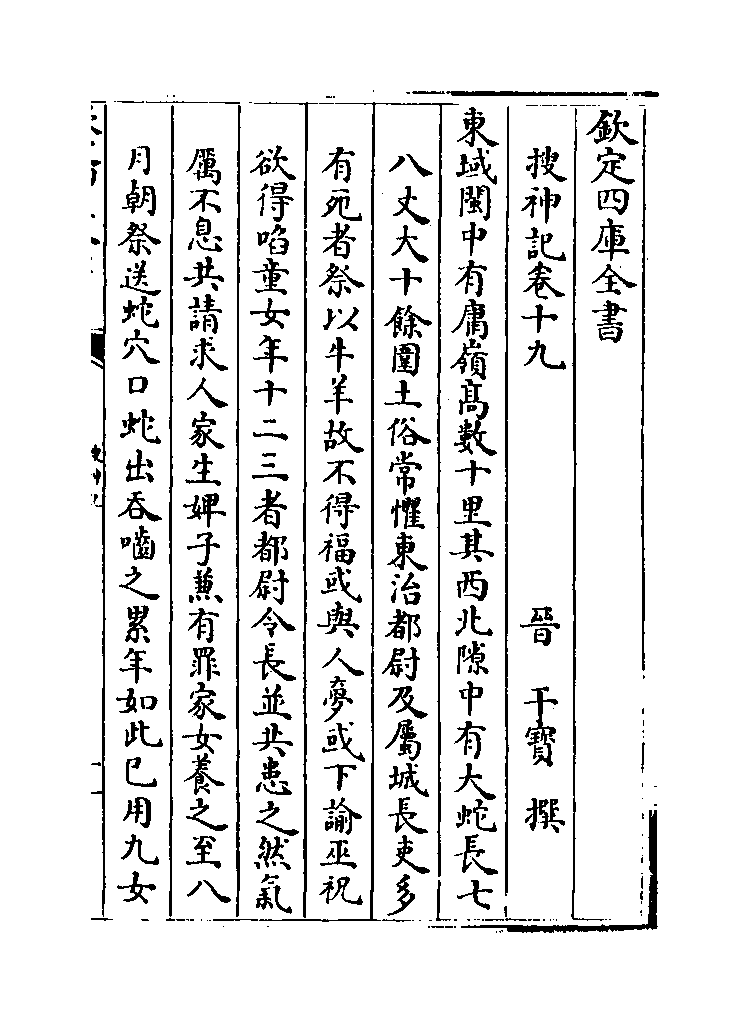 欽定四庫全書
搜神記卷十九
晉 干寶 撰
東域閩中有庸嶺髙數十里其西北隙中有大蛇長七
八丈大十餘圍土俗常懼東治都尉及屬城長吏多
有死者祭以牛羊故不得福或與人夢或下諭巫祝
欲得啗童女年十二三者都尉令長並共患之然氣
厲不息共請求人家生婢子兼有罪家女養之至八
月朝祭送蛇穴口蛇出吞嚙之累年如此已用九女